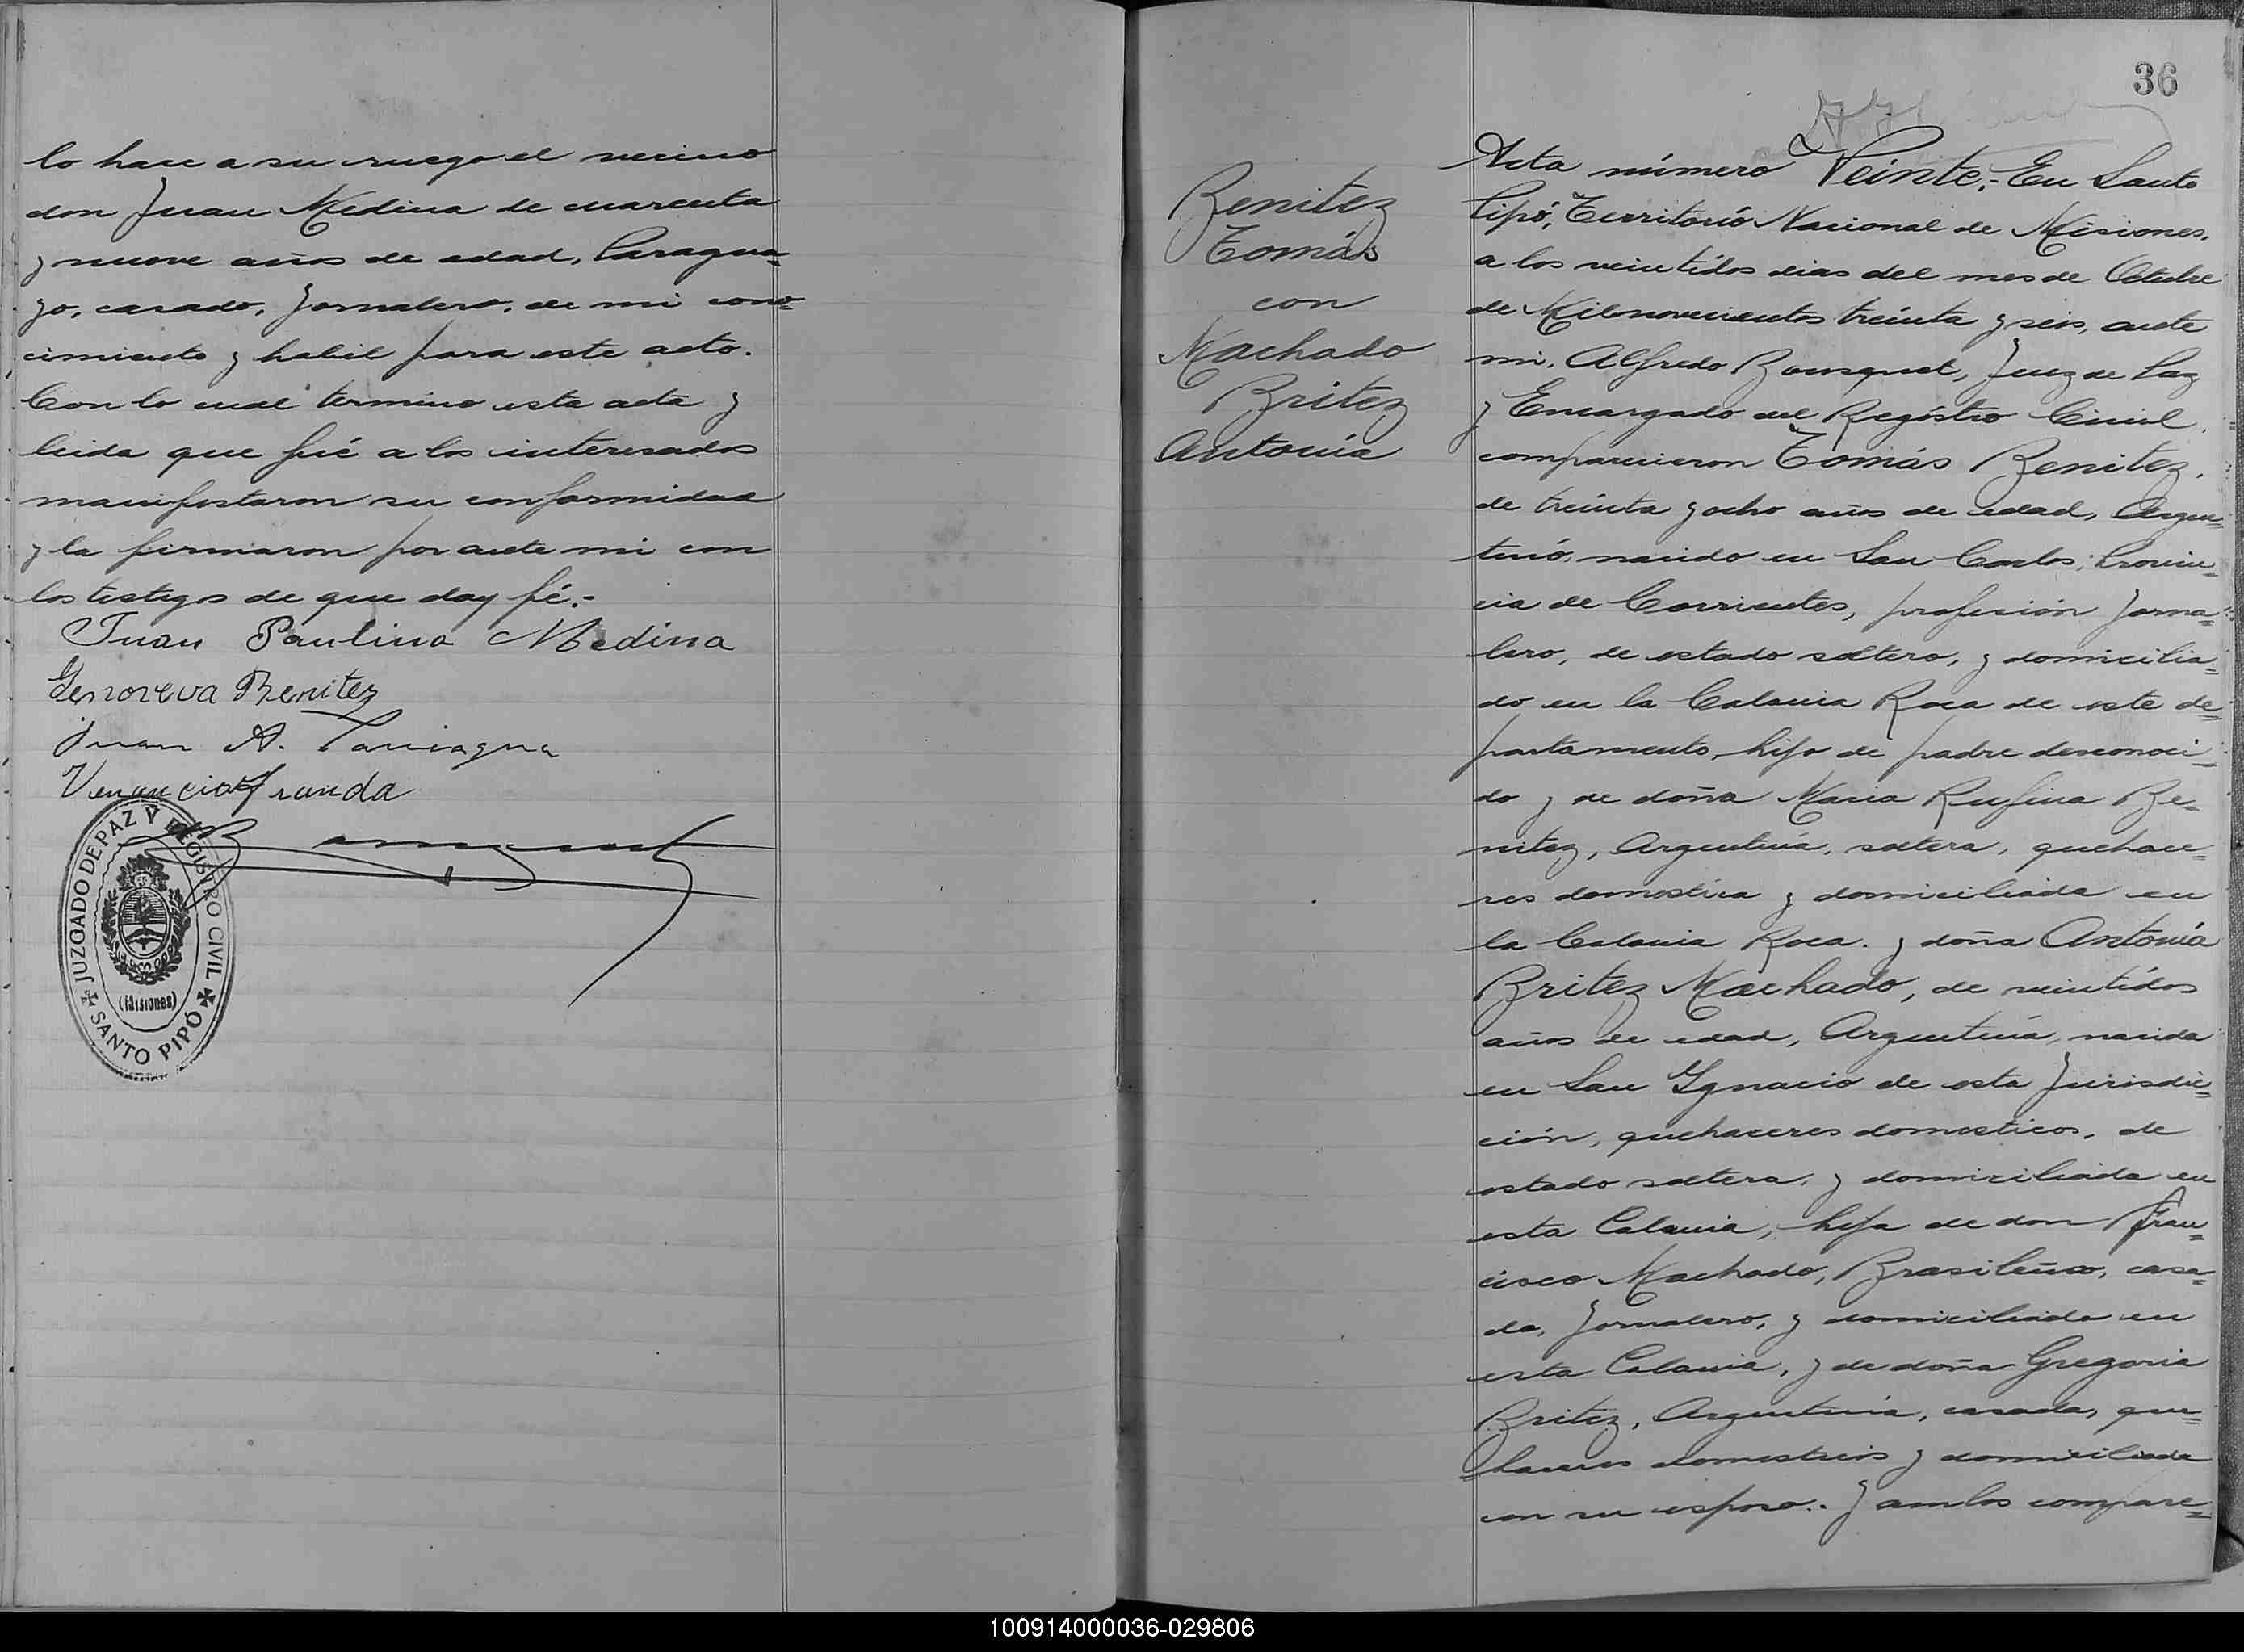 lo hace a su ruego el vecino
don Juan Medina de cuarenta
y nueve años de edad, Paragua=
yo, casado, Jornalero, de mi cono=
cimiento y habil para este acto.
Con lo cual termino esta acta y
leida que fué a los interesados
manifestaron su conformidad
y la firmaron por ante mi con
los testigos de que doy fé.-
Juan Paulino Medina
Genoveva Benitez
Juan A.
Venancio
JUZGADO DE PAZ Y REGISTRO CIVIL
(Misiones)
SANTO PIPÓ
36
Benitez
Tomás
con
Machado
Britez
Antonia
Acta número Veinte.- En Santo
Pipó, Territorio Nacional de Misiones,
a los veintidos dias del mes de Octubre
de Mil novecientos treinta y seis, ante
mi, Alfredo Bousquet, Juez de Paz
y Encargado del Registro Civil,
comparecieron Tomás Benitez,
de treinta y ocho años de edad, Argen=
tino, nacido en San Carlos, Provin=
cia de Corrientes, profesión Jorna=
lero, de estado soltero, y domicilia=
do en la Colonia Roca de este de=
partamento, hijo de padre desconoci=
do y de doña Maria Rufina Be=
nitez, Argentina, soltera, quehace=
res domestica y domiciliada en
la Colonia Roca. y doña Antonia
Britez Machado, de veintidos
años de edad, Argentina, nacida
en San Ygnacio de esta Jurisdic=
ción, quehaceres domesticos, de
estado soltera, y domiciliada en
esta Colonia, hija de don Fran=
cisco Machado, Brasileño, casa=
do, Jornalero, y domiciliado en
esta Colonia, y de doña Gregoria
Britez, Argentina, casada, que=
haceres domesticos y domiciliada
con su esposo.. Y ambos compare=
100914000036-029806